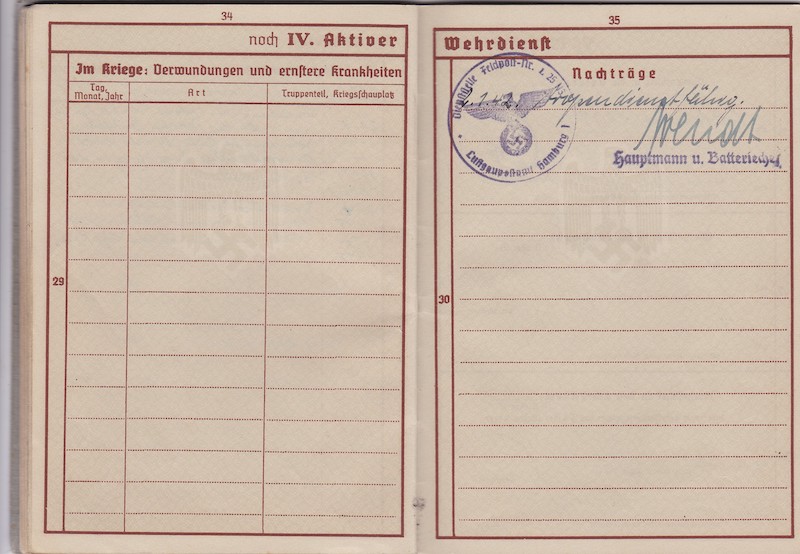 34
noch IV. Aktiver
Im Kriege: Verwundungen und ernstere Krankheiten
Tag, Monat, Jahr
Art
Truppenteil, Kriegsschauplatz
29
35
Wehrdienst
Nachträge
Tropendienstfähig.
Wendt
Hauptmann u. Batteriechef
Feldpost-Nr. L 25
Luftgaupostamt Hamburg 1
30